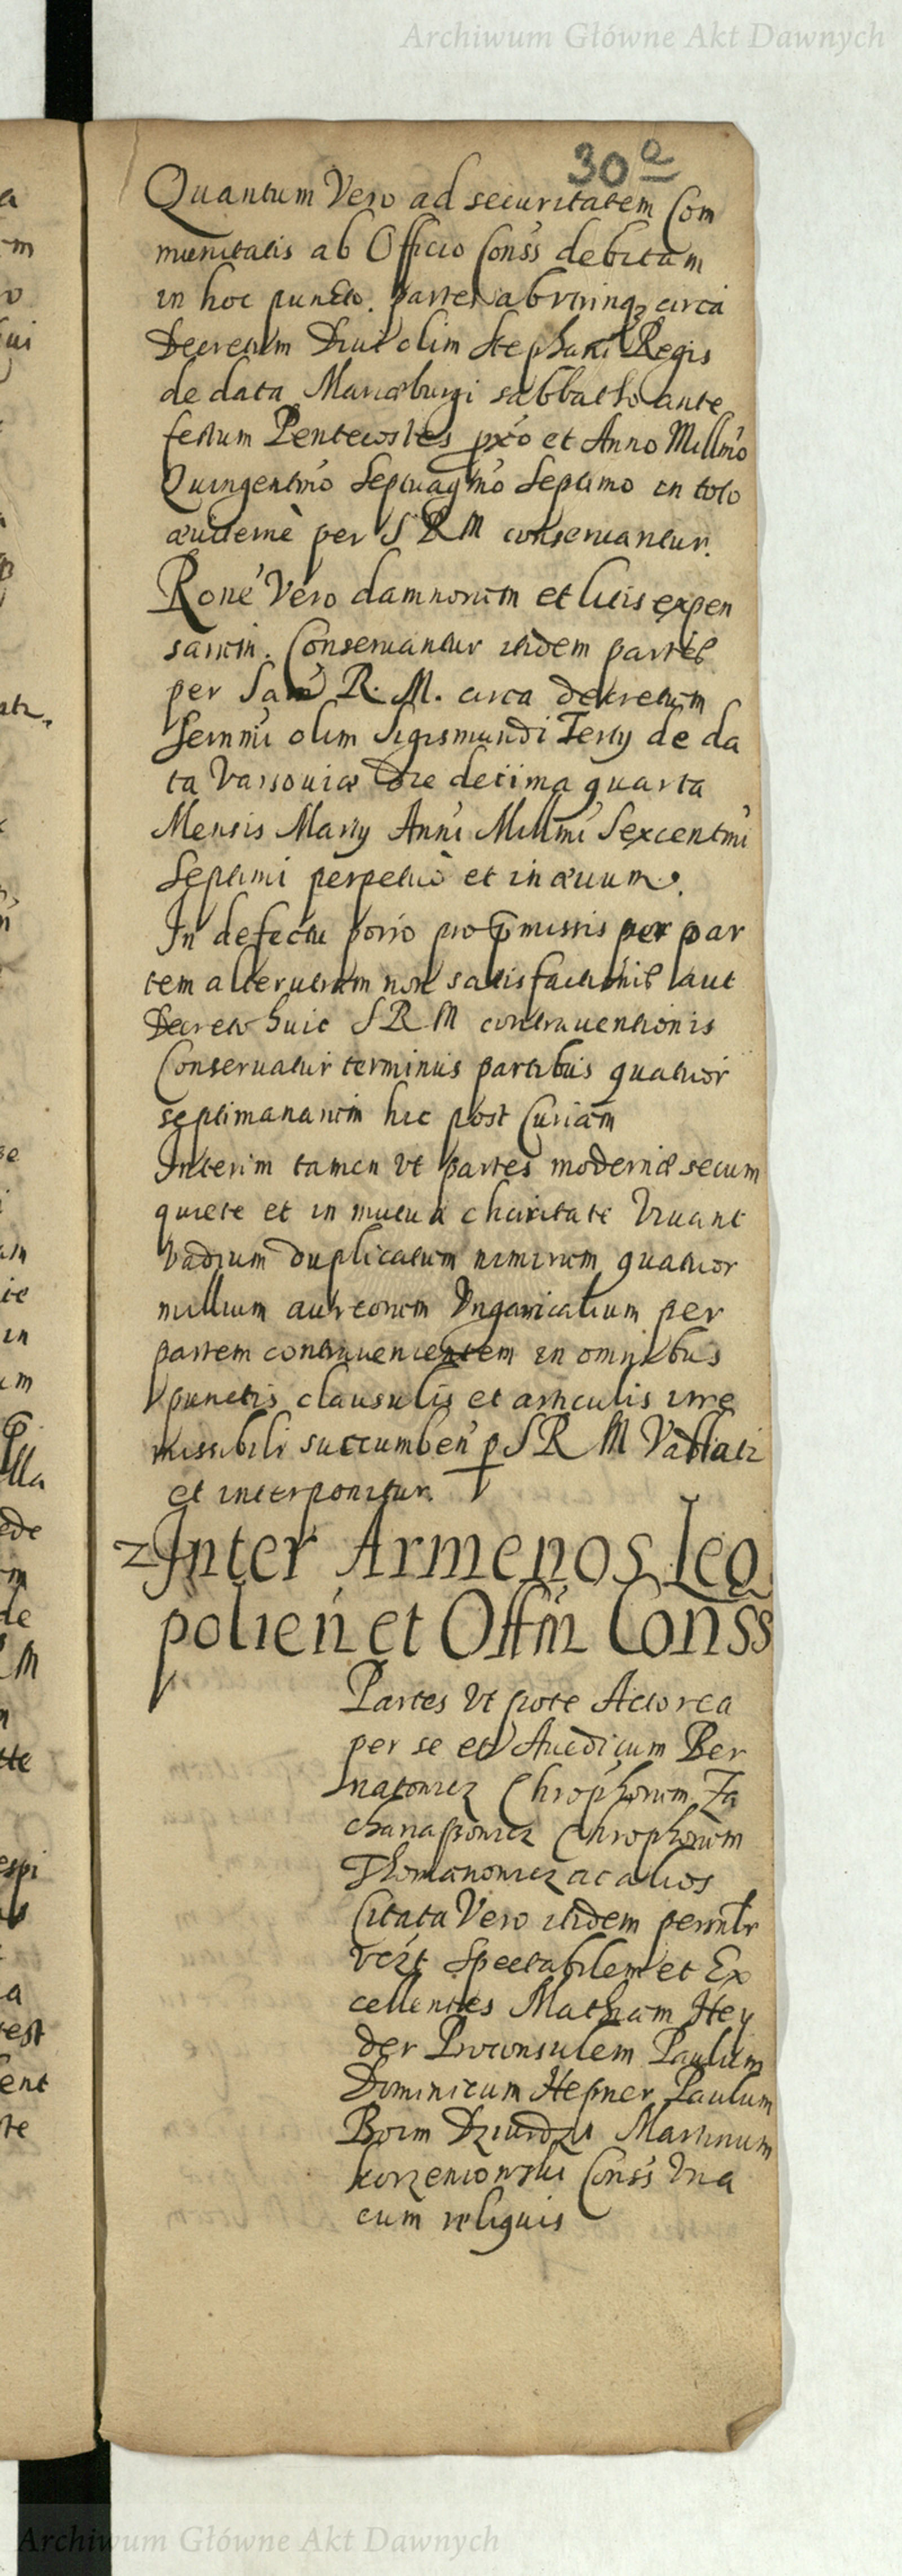 Archiwum Główne Akt Dawnych
30a
Quantum Vero ad securitatem Com
munitatis ab Officio Conss debitam
in hoc puncto. partes abvtrinq circa
Decretum Diui olim Stephani Regis
de data Mariæburgi sabbatho ante
festum Pentecostes pxo et Anno Millmo
Quingentmo Septuagmo Septimo in toto
per S R M conseruantur.
Rone Vero damnorum et litis expen
sarum. Conseruantur itidem partes
per Sam R. M. circa decretum
Sernmi olim Sigismundi Tertij de da
ta Varsouiæ Die decima quarta
Mensis Martij Anni Millmi Sexcentmi
Septimi perpetuo et in æuum.
In defectu porro pro pmissis per par
tem alterutram non satisfactionis aut
Decreto huic S R M contrauentionis
Conseruatur terminus partibus quatuor
septimanarum hic post Curiam
Interim tamen vt partes modernæ secum
quiete et in mutua charitate Viuant
Vadium duplicatum nimirum quatuor
millium aureorum Vngaricalium per
partem contrauenientem in omnibus
punctis clausulis et articulis irre
missibili succumben p S R M
et interponitur.
Inter Armenos Leo
polien et Offm Conss
Partes Vt pote Actorea
per se et Auedicum Ber
natowicz Chrophorum Za
Chrophorum
ac alios
Citata Vero itidem
Spectabilem et Ex
cellentes Mathiam Hey
der Proconsulem Paulum
Dominicum Hepner Paulum
Boim Martinum
Korzeniowski Conss Vna
cum reliquis
Archiwum Główne Akt Dawnych